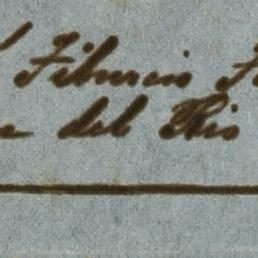 Tiburcio
del Rio